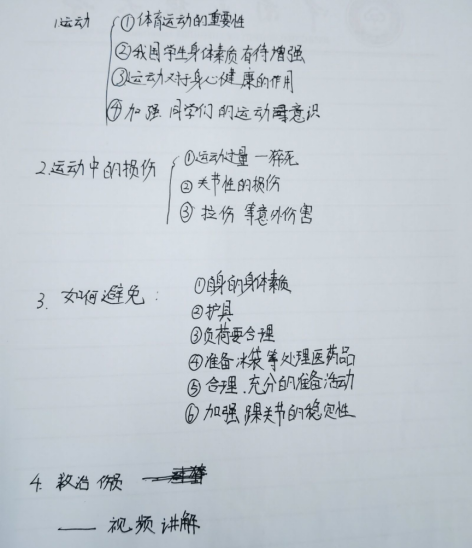 1.运动 ①体育运动的重要性
②我国学生身体素质有待增强
③运动又对身心健康的作用
④加强同学们的运动意识
2.运动中的损伤 ①运动过量—猝死
②关节性的损伤
③拉伤等意外伤害
3.如何避免: ①自身的身体素质
②护具
③负荷要合理
④准备冰袋等处理医药品
⑤合理.充分的准备活动
⑥加强踝关节的稳定性
4.救治
——视频讲解